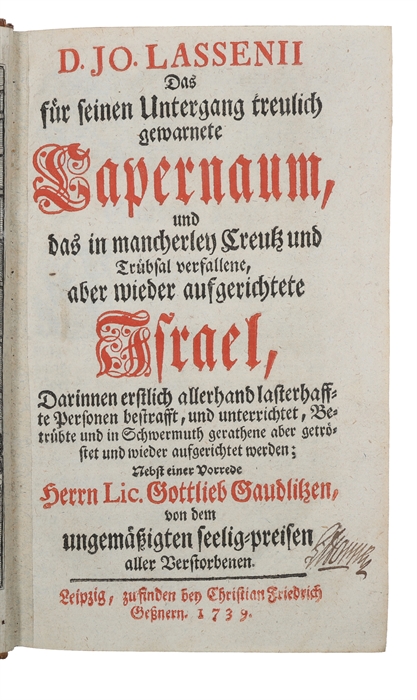 D. JO. LASSENII
Das
für seinen Untergang treulich
gewarnete
Capernaum,
und
das in mancherley Creutz und
Trübsal verfallene,
aber wieder aufgerichtete
Israel,
Darinnen erstlich allerhand lasterhaff-
te Personen bestrafft, und unterrichtet, Be-
trübte und in Schwermuth gerathene aber getrö-
stet und wieder aufgerichtet werden;
Nebst einer Vorrede
Herrn Lic. Gottlieb Gaudlitzen,
von dem
ungemäßigten seelig-preisen
aller Verstorbenen.
Leipzig, zu finden bey Christian Friedrich
Geßnern. 1739.